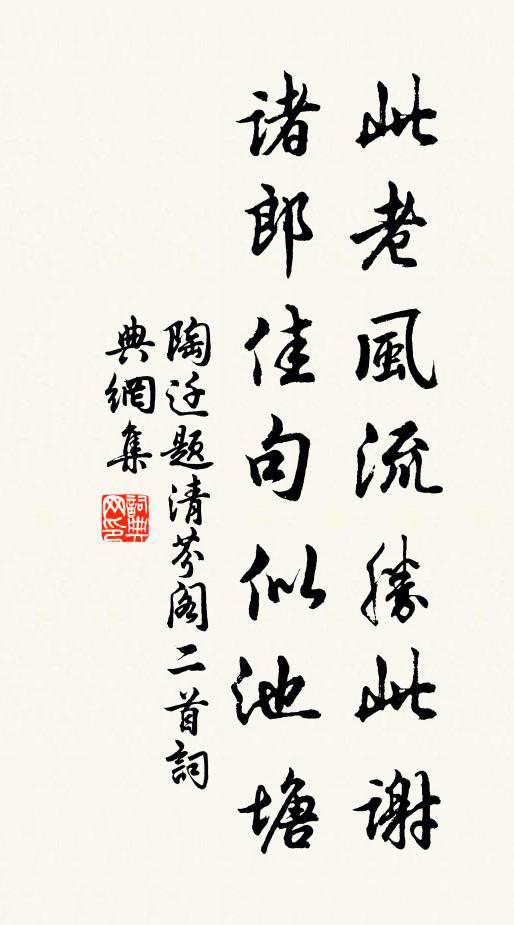 此老風流勝此謝
諸郎佳句似池塘
陶迁題清芬閣二首詞
典網集
詞典网印